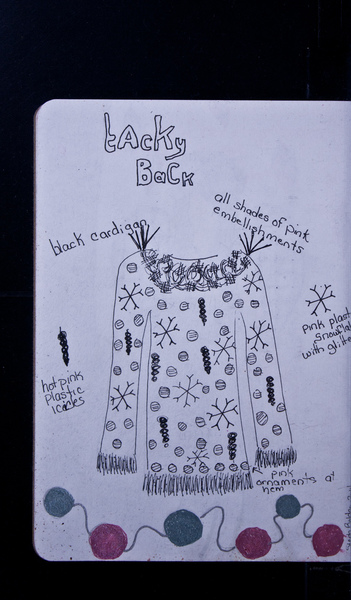 tAcKy
BaCK
all shades of pink
embellishments
black cardigan
pink plast
snowfla
with glitte
hot pink
plastic
icicles
pink
ornaments at
hem